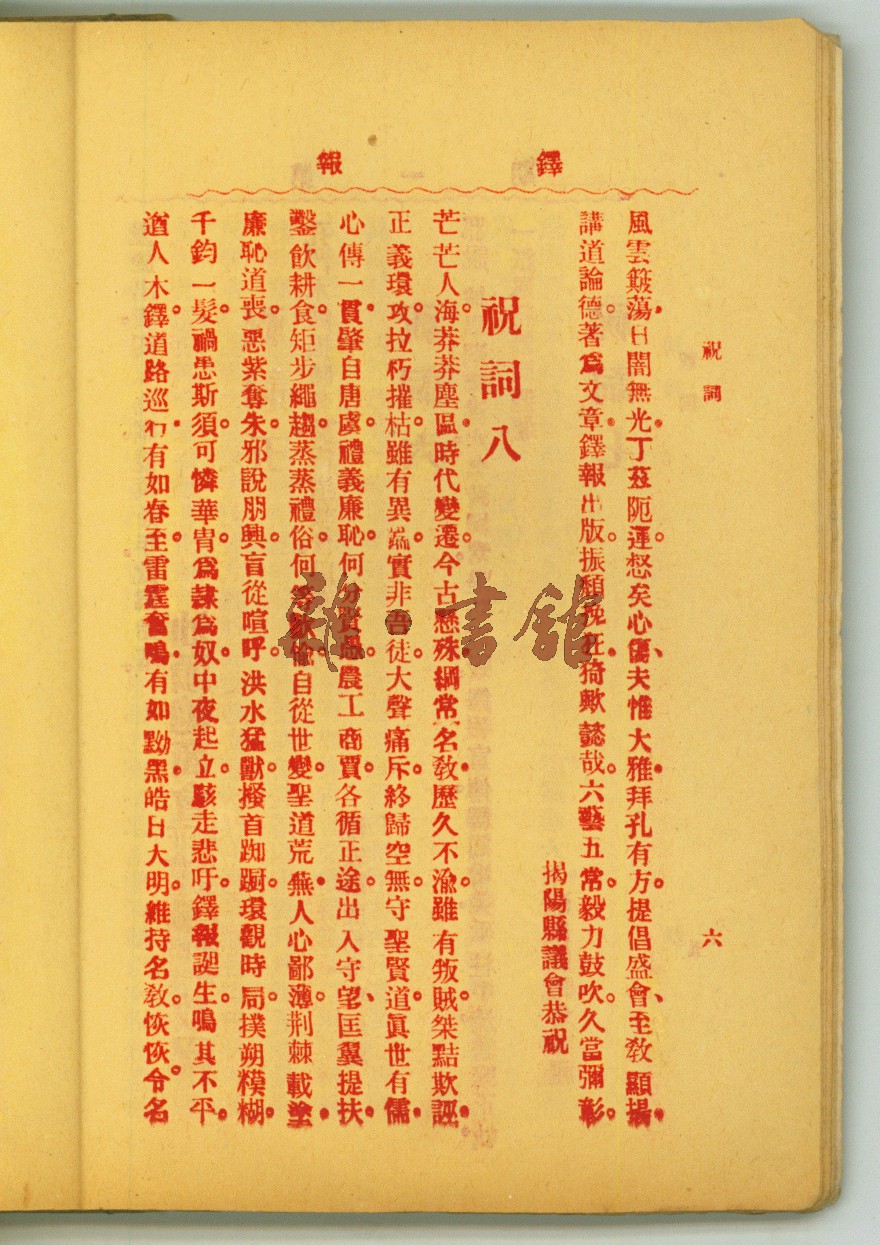 鐸報
祝詞
六
風雲簸蕩日闇無光丁茲阨運怒矣心傷夫惟大雅拜孔有方提倡盛會至敎顯揚
講道論德著爲文章鐸報出版振頹挽狂猗歟懿哉六藝五常毅力鼓吹久當彌彰
揭陽縣議會恭祝
祝詞八
芒芒人海莽莽塵區時代變遷今古懸殊綱常名敎歷久不渝雖有叛賊桀黠欺誣
正義環攻拉朽摧枯雖有異端實非吾徒大聲痛斥終歸空無守聖賢道眞世有儒
心傳一貫肇自唐虞禮義廉恥何分賢愚農工商賈各循正途出入守望匡翼提扶
鑿飲耕食矩步繩趨蒸蒸禮俗何等歡愉自從世變聖道荒蕪人心鄙薄荆棘載塗
廉恥道喪惡紫奪朱邪說朋興盲從喧呼洪水猛獸搔首踟躕環觀時局撲朔糢糊
千鈞一髮禍患斯須可憐華胄爲隸爲奴中夜起立駭走悲吁鐸報誕生鳴其不平
遒人木鐸道路巡行有如春至雷霆奮鳴有如黝黑皓日大明維持名敎恢恢令名
雜·書館